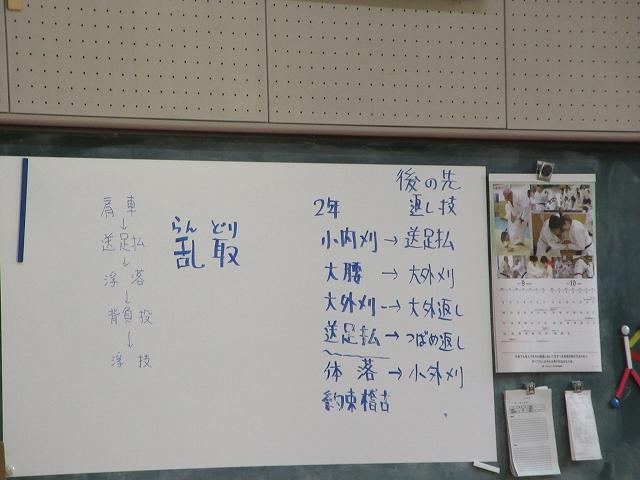 肩車
↓
送足払
↓
浮落
↓
背負投
↓
浮技
らんどり
乱取
後の先
2年 返し技
小内刈→送足払
大腰→大外刈
大外刈→大外返し
送足払→つばめ返し
体落→小外刈
約束稽古
9
10